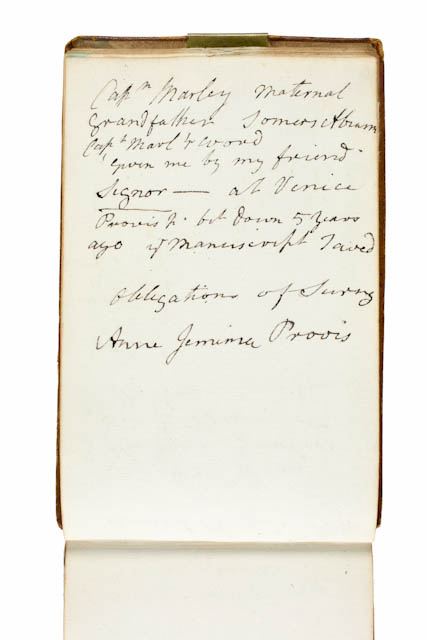 Capn Marley maternal
Grandfather Somers Abram
Captn Marl'y's word
Given me by my friend
Signor — at Venice
Provis h. bt down 5 years
ago ye Manuscript saved
obligations of
Anne Jemima Provis